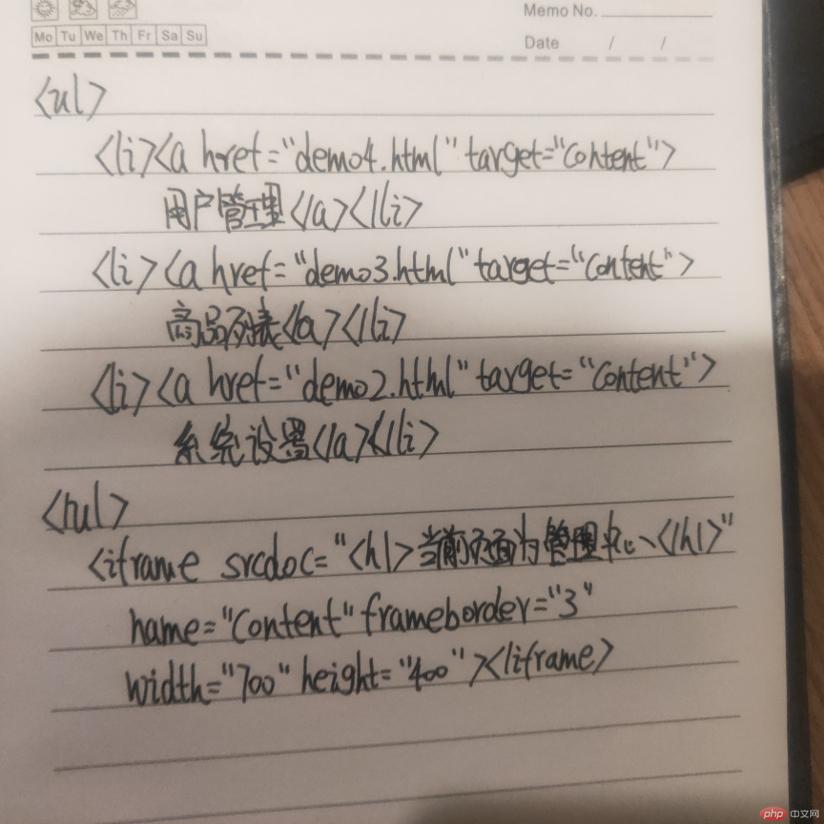 Memo No.
Mo Tu We Th Fr Sa Su
Date / /
<ul>
<li><a href="demo4.html" target="Content">
用户管理</a></li>
<li><a href="demo3.html" target="Content">
商品列表</a></li>
<li><a href="demo2.html" target="Content">
系统设置</a></li>
</ul>
<iframe srcdoc="<h1>当前页面为管理中心</h1>"
name="Content" frameborder="3"
width="700" height="400"></iframe>
php 中文网